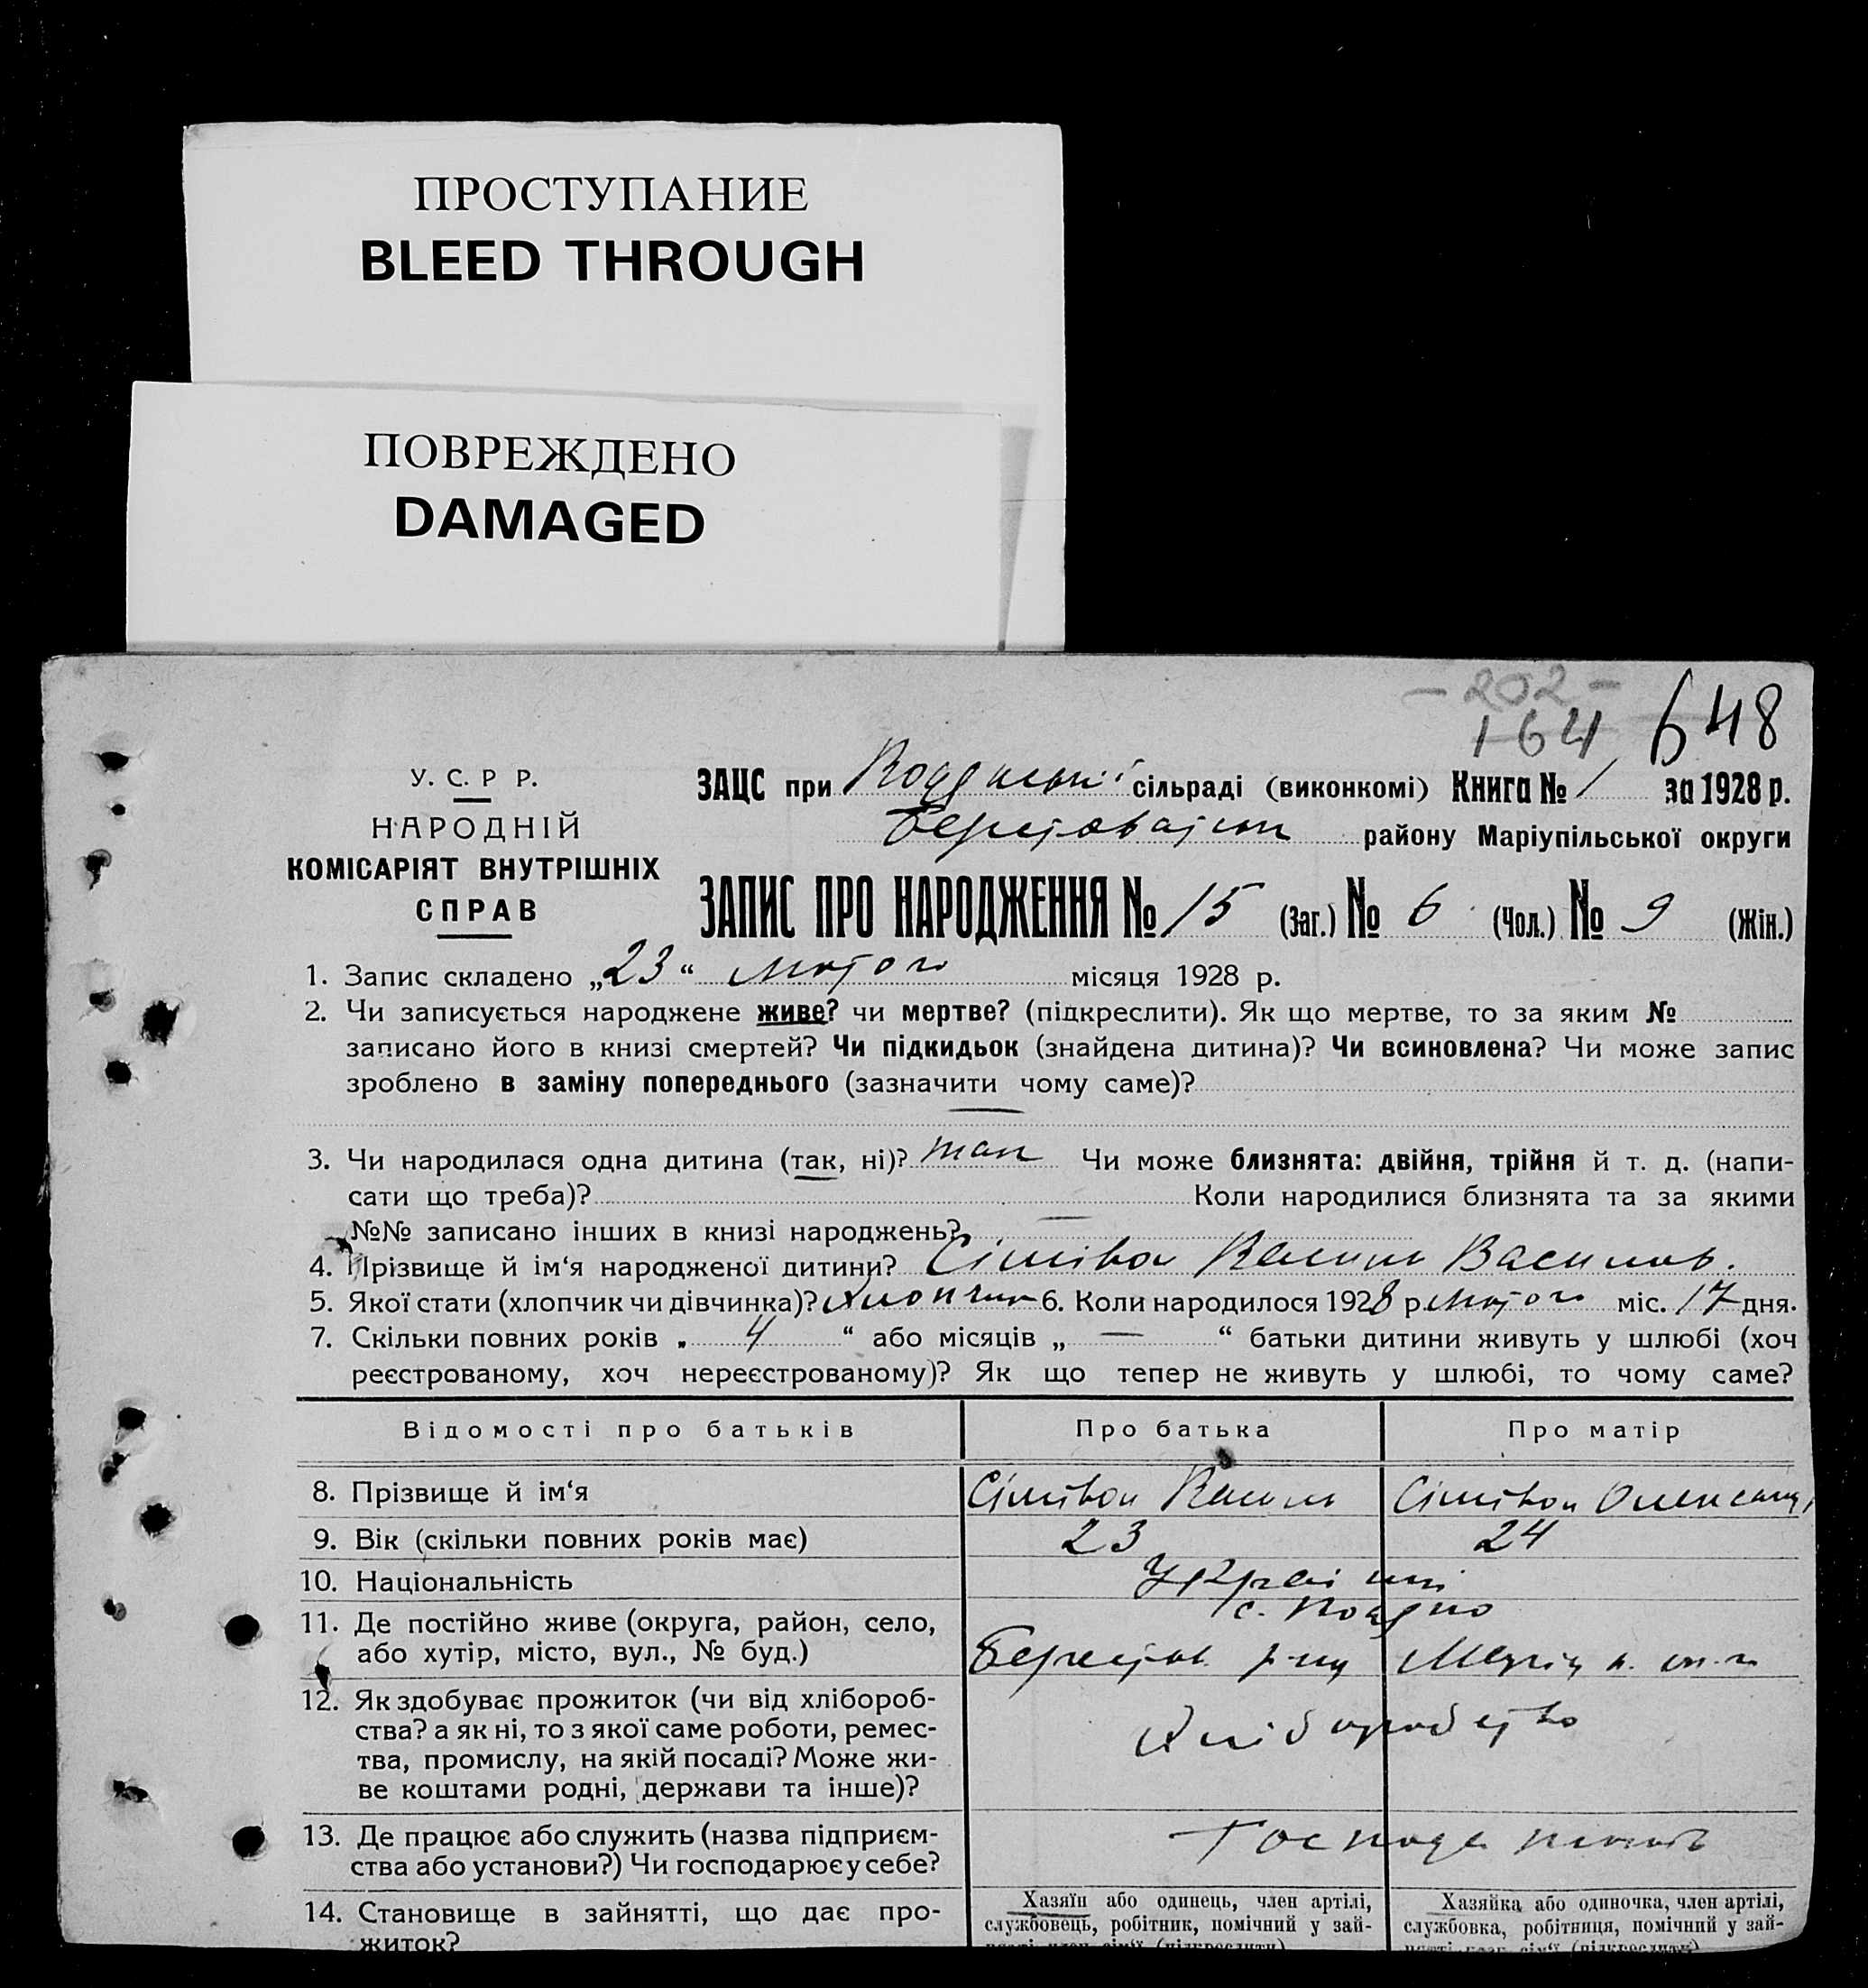 ПРОСТУПАНИЕ
BLEED THROUGH
ПОВРЕЖДЕНО
DAMAGED
- 202 -
164 648
У. С. Р Р.
НАРОДНІЙ
КОМІСАРІЯТ ВНУТРІШНІХ
СПРАВ
ЗАЦС при сільраді (виконкомі) Книга № 1 за 1928 р.
району Маріупільської округи
ЗАПИС ПРО НАРОДЖЕННЯ № 15 (Заг.) № 6 (Чол.) № 9 (Жін.)
1. Запис складено „23“ лютого місяця 1928 р.
2. Чи записується народжене живе? чи мертве? (підкреслити). Як що мертве, то за яким №
записано його в книзі смертей? Чи підкидьок (знайдена дитина)? Чи всиновлена? Чи може запис
зроблено в заміну попереднього (зазначити чому саме)? —
3. Чи народилася одна дитина (так, ні)? так Чи може близнята: двійня, трійня й т. д. (напи-
сати що треба)? Коли народилися близнята та за якими
№№ записано інших в книзі народжень? —
4. Прізвище й ім‘я народженої дитини? Василь Василів.
5. Якої стати (хлопчик чи дівчинка)? Хлопчик 6. Коли народилося 1928 р. лютого міс. 17 дня.
7. Скільки повних років „ 4 “ або місяців „ — “ батьки дитини живуть у шлюбі (хоч
реєстрованому, хоч нереєстрованому)? Як що тепер не живуть у шлюбі, то чому саме?
Відомості про батьків Про батька Про матір
8. Прізвище й ім‘я Василь
9. Вік (скільки повних років має) 23 24
10. Національність
11. Де постійно живе (округа, район, село,
або хутір, місто, вул., № буд.)
12. Як здобуває прожиток (чи від хлібороб-
ства? а як ні, то з якої саме роботи, ремес-
тва, промислу, на якій посаді? Може жи-
ве коштами родні, держави та інше)?
Хліборобство
13. Де працює або служить (назва підприєм-
ства або установи?) Чи господарює у себе?
14. Становище в зайнятті, що дає про-
житок?
Хазяїн або одинець, член артілі,
службовець, робітник, помічний у зай-
нятті член сім‘ї (підкреслити)
Хазяйка або одиночка, член артілі,
службовка, робітниця, помічний у зай-